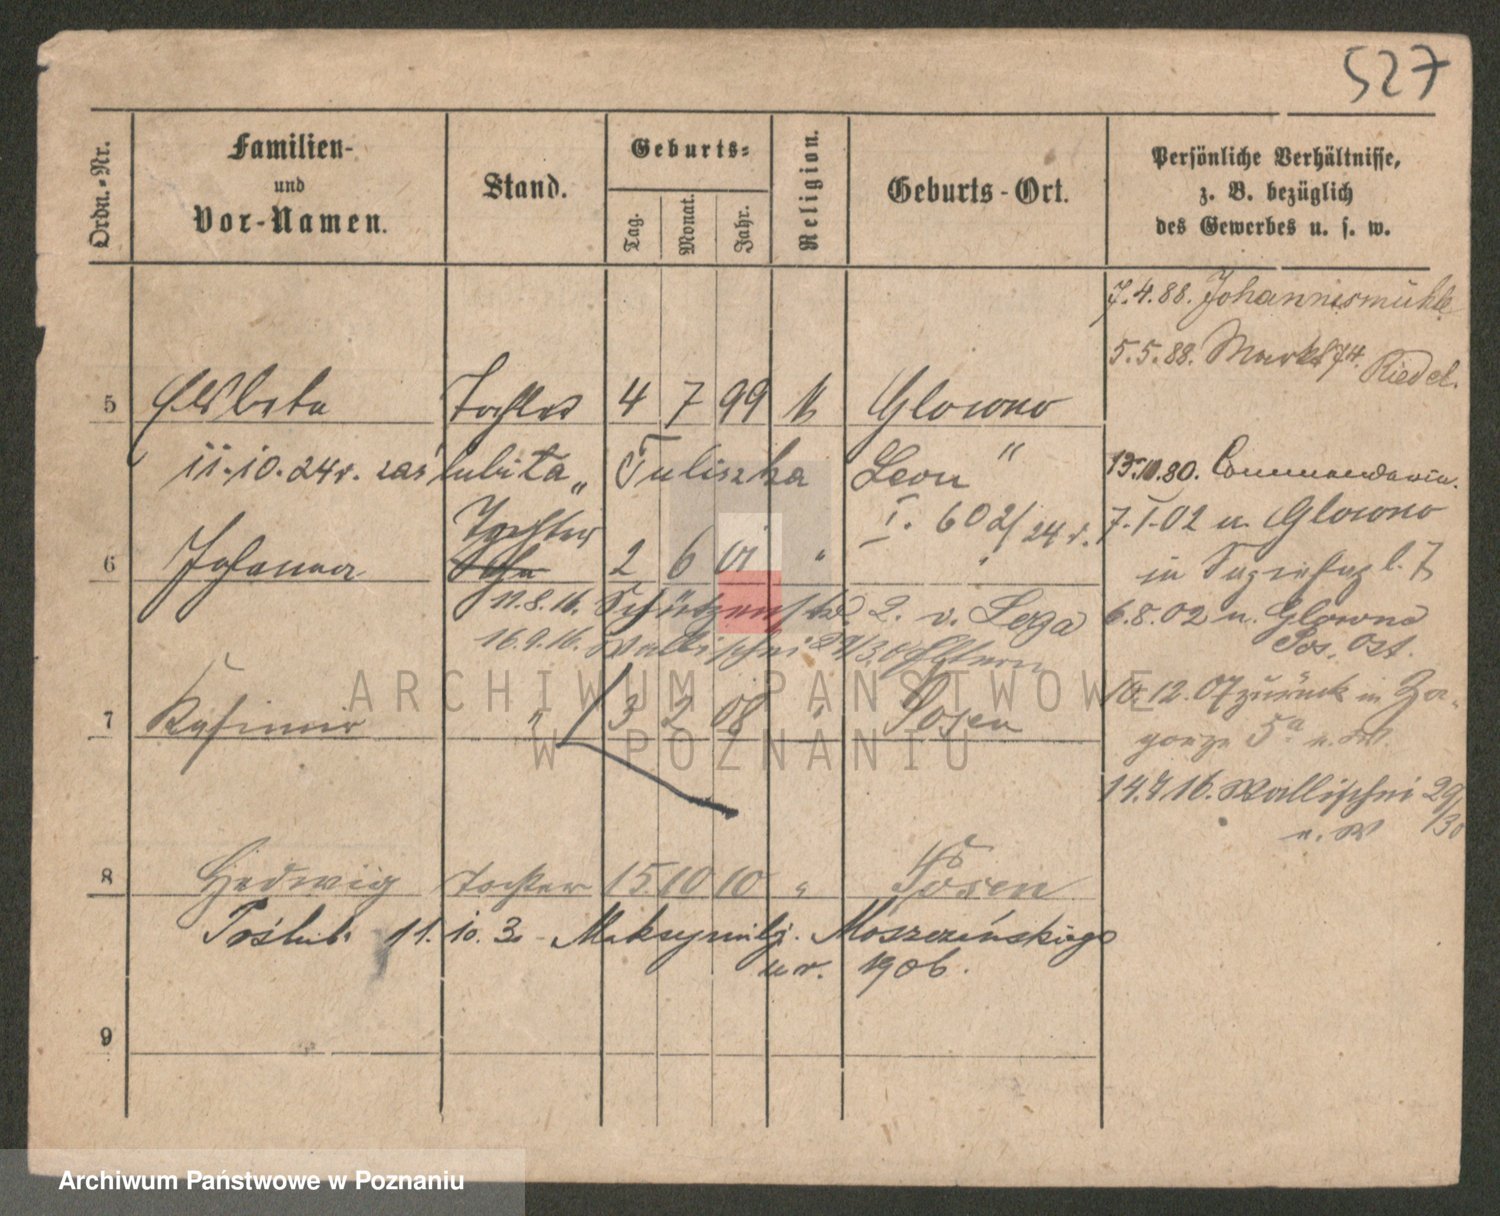 527
Ordn.-Nr.
Familien-
und
Vor-Namen.
Stand.
Geburts-
Tag.
Monat.
Jahr.
Religion.
Geburts-Ort.
Persönliche Verhältnisse,
z. B. bezüglich
des Gewerbes u. s. w.
7.4.88. Johannismühle
5.5.88. Markt 74. Riedel.
5 Elsbeta Tochter 4 7 99 k Glowno
11.10.24 r. zaślubiła „ Tuliszka Leon "
13.10.80. Commenderie.
I. 602/24 r.
7.I.02 u. Glowno
6 Johanna Tochter 2 6 01 " "
in l. 7
11.8.16. Schützenstr. 2. v.
6.8.02 u. Glowno
Pos. Ost.
16.9.16. Wallischei 29/30 Eltern
7 Kasimir " 3 2 08 " Posen
10.12.07 zurück in Za-
gorze 5a u. W.
14.4.16. Wallischei 29/30
u. W
8 Hedwig Tochter 15 10 10 " Posen
Poślub. 11.10.3 - Maksymilj. Moszczeńskiego
ur. 1906.
9
ARCHIWUM PAŃSTWOWE
W POZNANIU
Archiwum Państwowe w Poznaniu